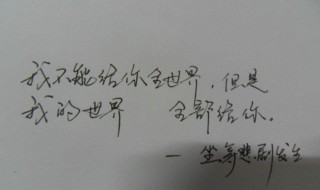 我不能给你全世界,但是
我的世界 全部给你。
— 坐等悲剧发生